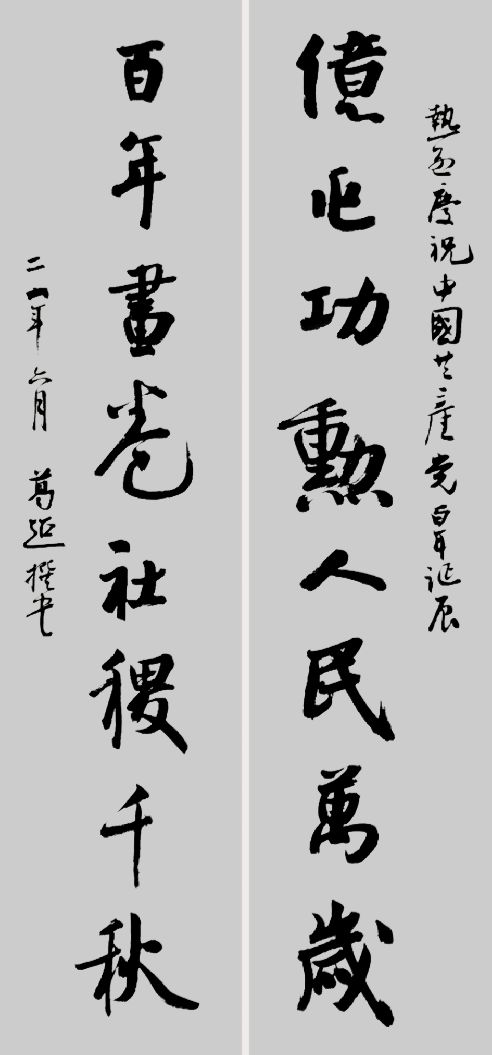 熱烈慶祝中國共產党百年誕辰
億兆功勳人民萬歲
百年畫卷社稷千秋
年六月 葛 撰书